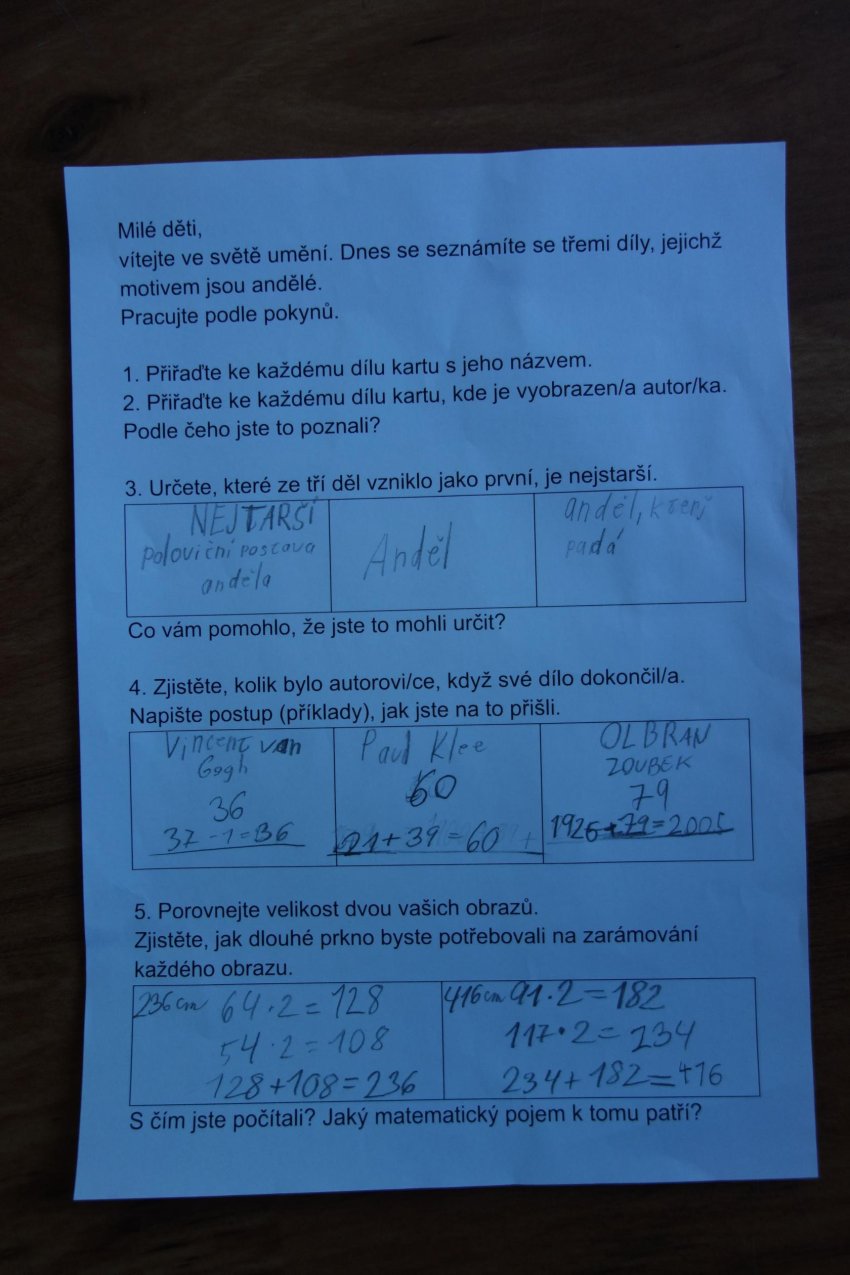 Milé děti,
vítejte ve světě umění. Dnes se seznámíte se třemi díly, jejichž
motivem jsou andělé.
Pracujte podle pokynů.
1. Přiřaďte ke každému dílu kartu s jeho názvem.
2. Přiřaďte ke každému dílu kartu, kde je vyobrazen/a autor/ka.
Podle čeho jste to poznali?
3. Určete, které ze tří děl vzniklo jako první, je nejstarší.
NEJTARŠÍ
poloviční postava
anděla
Anděl
anděl, který
padá
Co vám pomohlo, že jste to mohli určit?
4. Zjistěte, kolik bylo autorovi/ce, když své dílo dokončil/a.
Napište postup (příklady), jak jste na to přišli.
Vincent van
Gogh
36
37-1=36
Paul Klee
60
21+39=60
OLBRAN
ZOUBEK
79
1926+79=2005
5. Porovnejte velikost dvou vašich obrazů.
Zjistěte, jak dlouhé prkno byste potřebovali na zarámování
každého obrazu.
236cm 64·2=128
54·2=108
128+108=236
416cm 91·2=182
117·2=234
234+182=416
S čím jste počítali? Jaký matematický pojem k tomu patří?